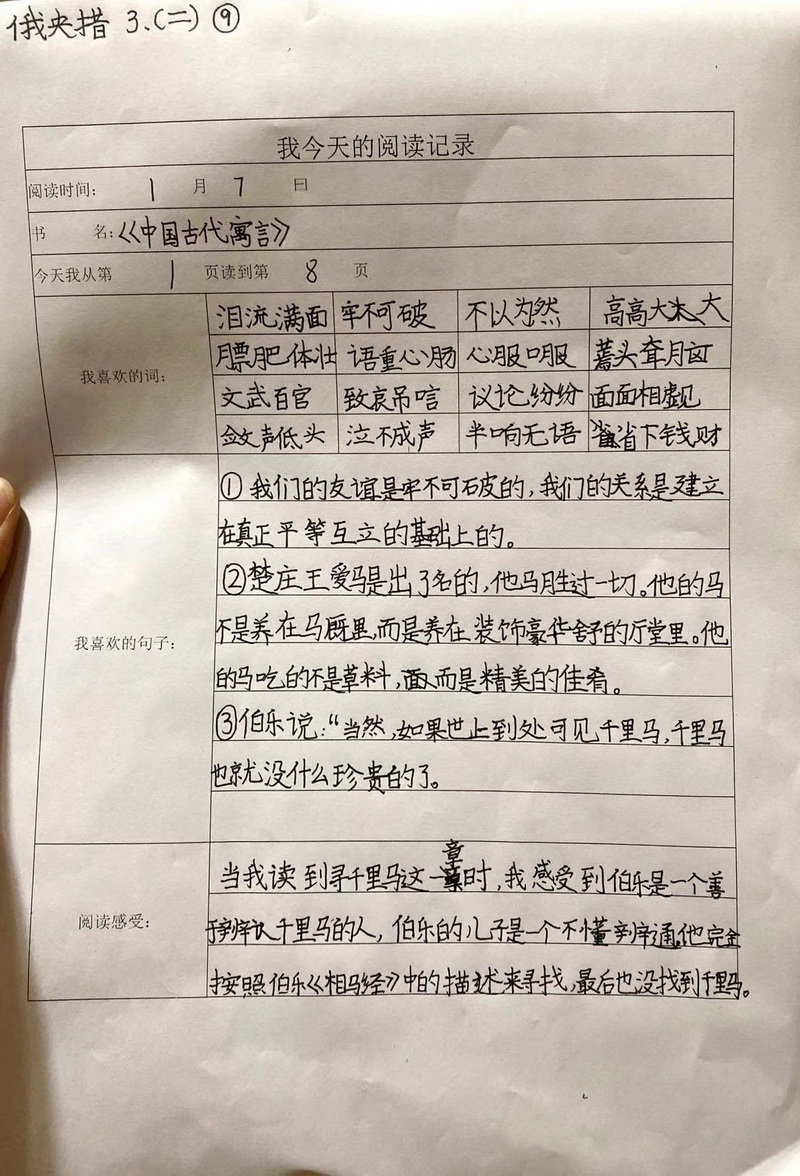 俄央措 3.(二) ⑨
我今天的阅读记录
阅读时间: 1 月 7 日
书 名:《中国古代寓言》
今天我从第 1 页读到第 8 页
我喜欢的词:
泪流满面 牢不可破 不以为然 高高大大
膘肥体壮 语重心肠 心服口服 蒿头耷月
文武百官 致哀吊唁 议论纷纷 面面相觑
敛声低头 泣不成声 半响无语 省下钱财
我喜欢的句子:
①我们的友谊是牢不可破的,我们的关系是建立
在真正平等互立的基础上的。
②楚庄王爱马是出了名的,他马胜过一切。他的马
不是养在马厩里,而是养在装饰豪华舒的厅堂里。他
的马吃的不是草料,而是精美的佳肴。
③伯乐说:“当然,如果世上到处可见千里马,千里马
也就没什么珍贵的了。
阅读感受:
当我读到寻千里马这一章时,我感受到伯乐是一个善
于辨认千里马的人,伯乐的儿子是一个不懂变通。他完全
按照伯乐《相马经》中的描述来寻找,最后也没找到千里马。